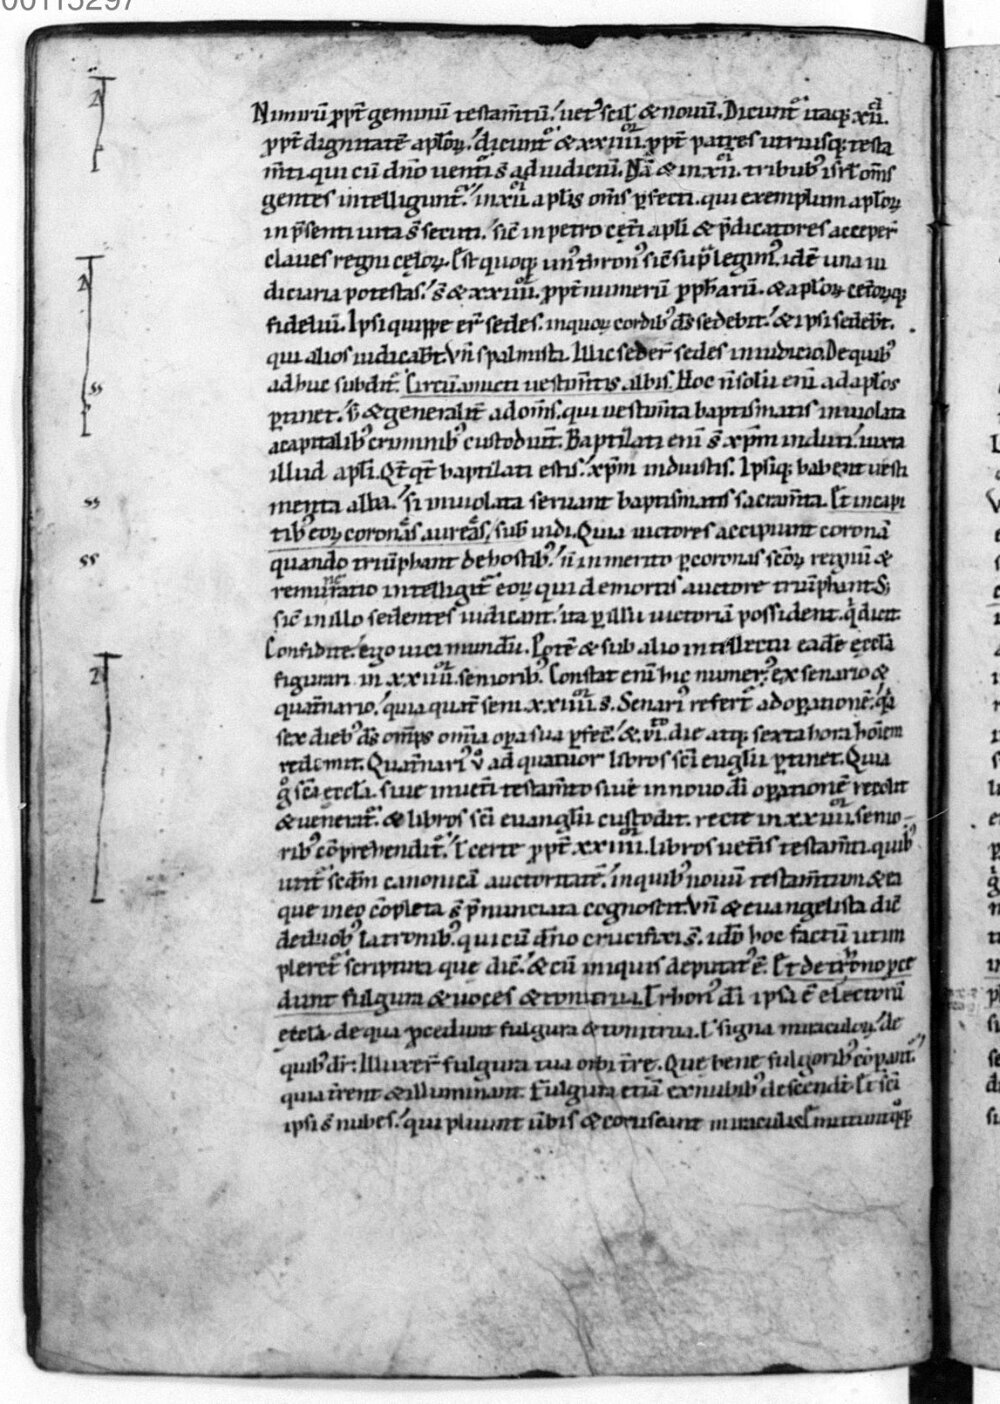 00115297
Nimirū ꝓpt̄ geminū testam̄tū. uet᷒ scil᷒ & nouū. Dicunt᷒ itaq; xii.
ꝓpt̄ dignitatē aplōꝝ. dicunt᷒ & xxiiii. ꝓpt̄ patres utriusq; testa
m̄ti. qui cū dn̄o uenturi s̄ ad iudiciū. Nā & in xii. tribub᷒ isrl̄ om̄s
gentes intelligunt᷒. in xii aplis om̄s ꝑfecti. qui exemplum aplōꝝ
in p̄senti uita s̄ secuti. sic̄ in petro cet̄i apli & p̄dicatores acceper̄
claues regni celoꝝ. Est quoq; un᷒ thron᷒ sic̄ sup̄ legim᷒. idē una iu
diciaria potestas. s̄ & xxiiii. ꝓpt̄ numerū ꝓph̄arū. & aplōꝝ cet̄oꝝq;
fideliū. Ipsi quippe er̄ sedes. in quoꝝ cordib᷒ ds̄ sedebit. & ipsi sedeb̄t.
qui alios iudicab̄t. Vn̄ spalmista. Illic seder̄ sedes in iudicio. De quib᷒
adhuc subdit᷒. Circūamicti uestim̄tis albis. Hoc n̄ solū eni ad aplōs
ꝑtinet. s̄ & generalit̄ ad om̄s. qui uestim̄ta baptismatis inuiolata
a capitalib᷒ criminib᷒ custodiunt. Baptizati eni s̄ xp̄m induti. iuxta
illud apli. Qt̄qt̄ baptizati estis. xp̄m induistis. Ipsiq; habent uesti
menta alba. si inuiolata seruant baptismatis sacram̄ta. Et in capi
tib᷒ eoꝝ coronas aureas. sub᷒ uidi. Quia uictores accipiunt coronā
quando triūphant de hostib᷒. n̄ inmerito ꝑ coronas sc̄oꝝ regnū &
remuneratio intelligit᷒ eoꝝ qui de mortis auctore triūphant. S;
sic̄ in illo sedentes iudicant. ita ꝑ illū uictoriā possident. qi dicit.
Confidite. ego uici mundū. Potē & sub alio intellectu eadē eccla
figurari in xxiiii. seniorib᷒. Constat eni hic numer᷒. ex senario &
quat̄nario. quia quat̄ seni. xxiiii. s̄. Senari᷒ refert᷒ ad oꝑationē. qa
sex dieb᷒ ds̄ omps omia opa sua ꝑfec̄. & vi. die atq; sexta hora hoiem
redemit. Quat̄nari᷒ u̾ ad quatuor libros sci eug̅lii ꝑtinet. Quia
g̊ sca eccla. siue in uet̄i testam̄to siue in nouo di oꝑationē recolit
& uenerat᷒. & libros sci euangl̄ii custodit. recte in xxiiii. senio
rib᷒ cōprehendit᷒. I certe ꝓpt̄ xxiiii. libros uet̄is testam̄ti. quib᷒
utit᷒ sedm canonicā auctoritatē. in quib᷒ nouū testam̄tum & ea
que in eo cōpleta s̄ p̄nunciata cognoscit. Vn̄ & euangelista dic̄
de duob᷒ latronib᷒. qui cū dn̄o crucifixi s̄. ido hoc factū ut im
pleret᷒ scriptura que dic̄. & cū iniquis deputat᷒ ē. Et de throno ꝓce
dunt fulgura & uoces & tonitrua. Thron᷒ di ipsa ē electorū
eccla. de qua ꝓcedunt fulgura & tonitrua. I signa miraculoꝝ. de
quib᷒ dr̄. Illuxer̄ fulgura tua orbi t̄re. Que bene fulgorib᷒ cōpant᷒.
quia t̄rent & illuminant. Fulgura etiā ex nubib᷒ descend̄t. Et sci
ipsi s̄ nubes. qui pluunt u̾bis & coruscant miraculis. Emittunt qq;